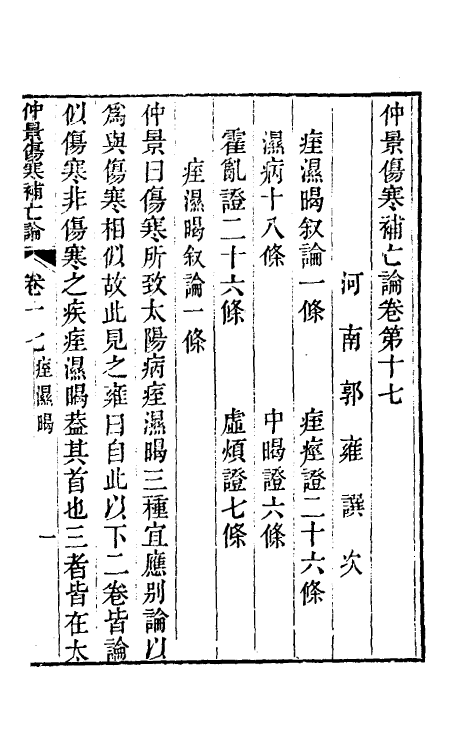 仲景傷寒補亡論卷第十七
河南郭雍譔次
痓濕暍叙論一條
痓痙證二十六條
濕病十八條
中暍證六條
霍亂證二十六條
虛煩證七條
痓濕暍叙論一條
仲景曰傷寒所致太陽病痓濕暍三種宜應别論以
爲與傷寒相似故此見之雍曰自此以下二卷皆論
似傷寒非傷寒之疾痓濕暍葢其首也三者皆在太
仲景傷寒補亡論
卷十七
痓濕暍
一